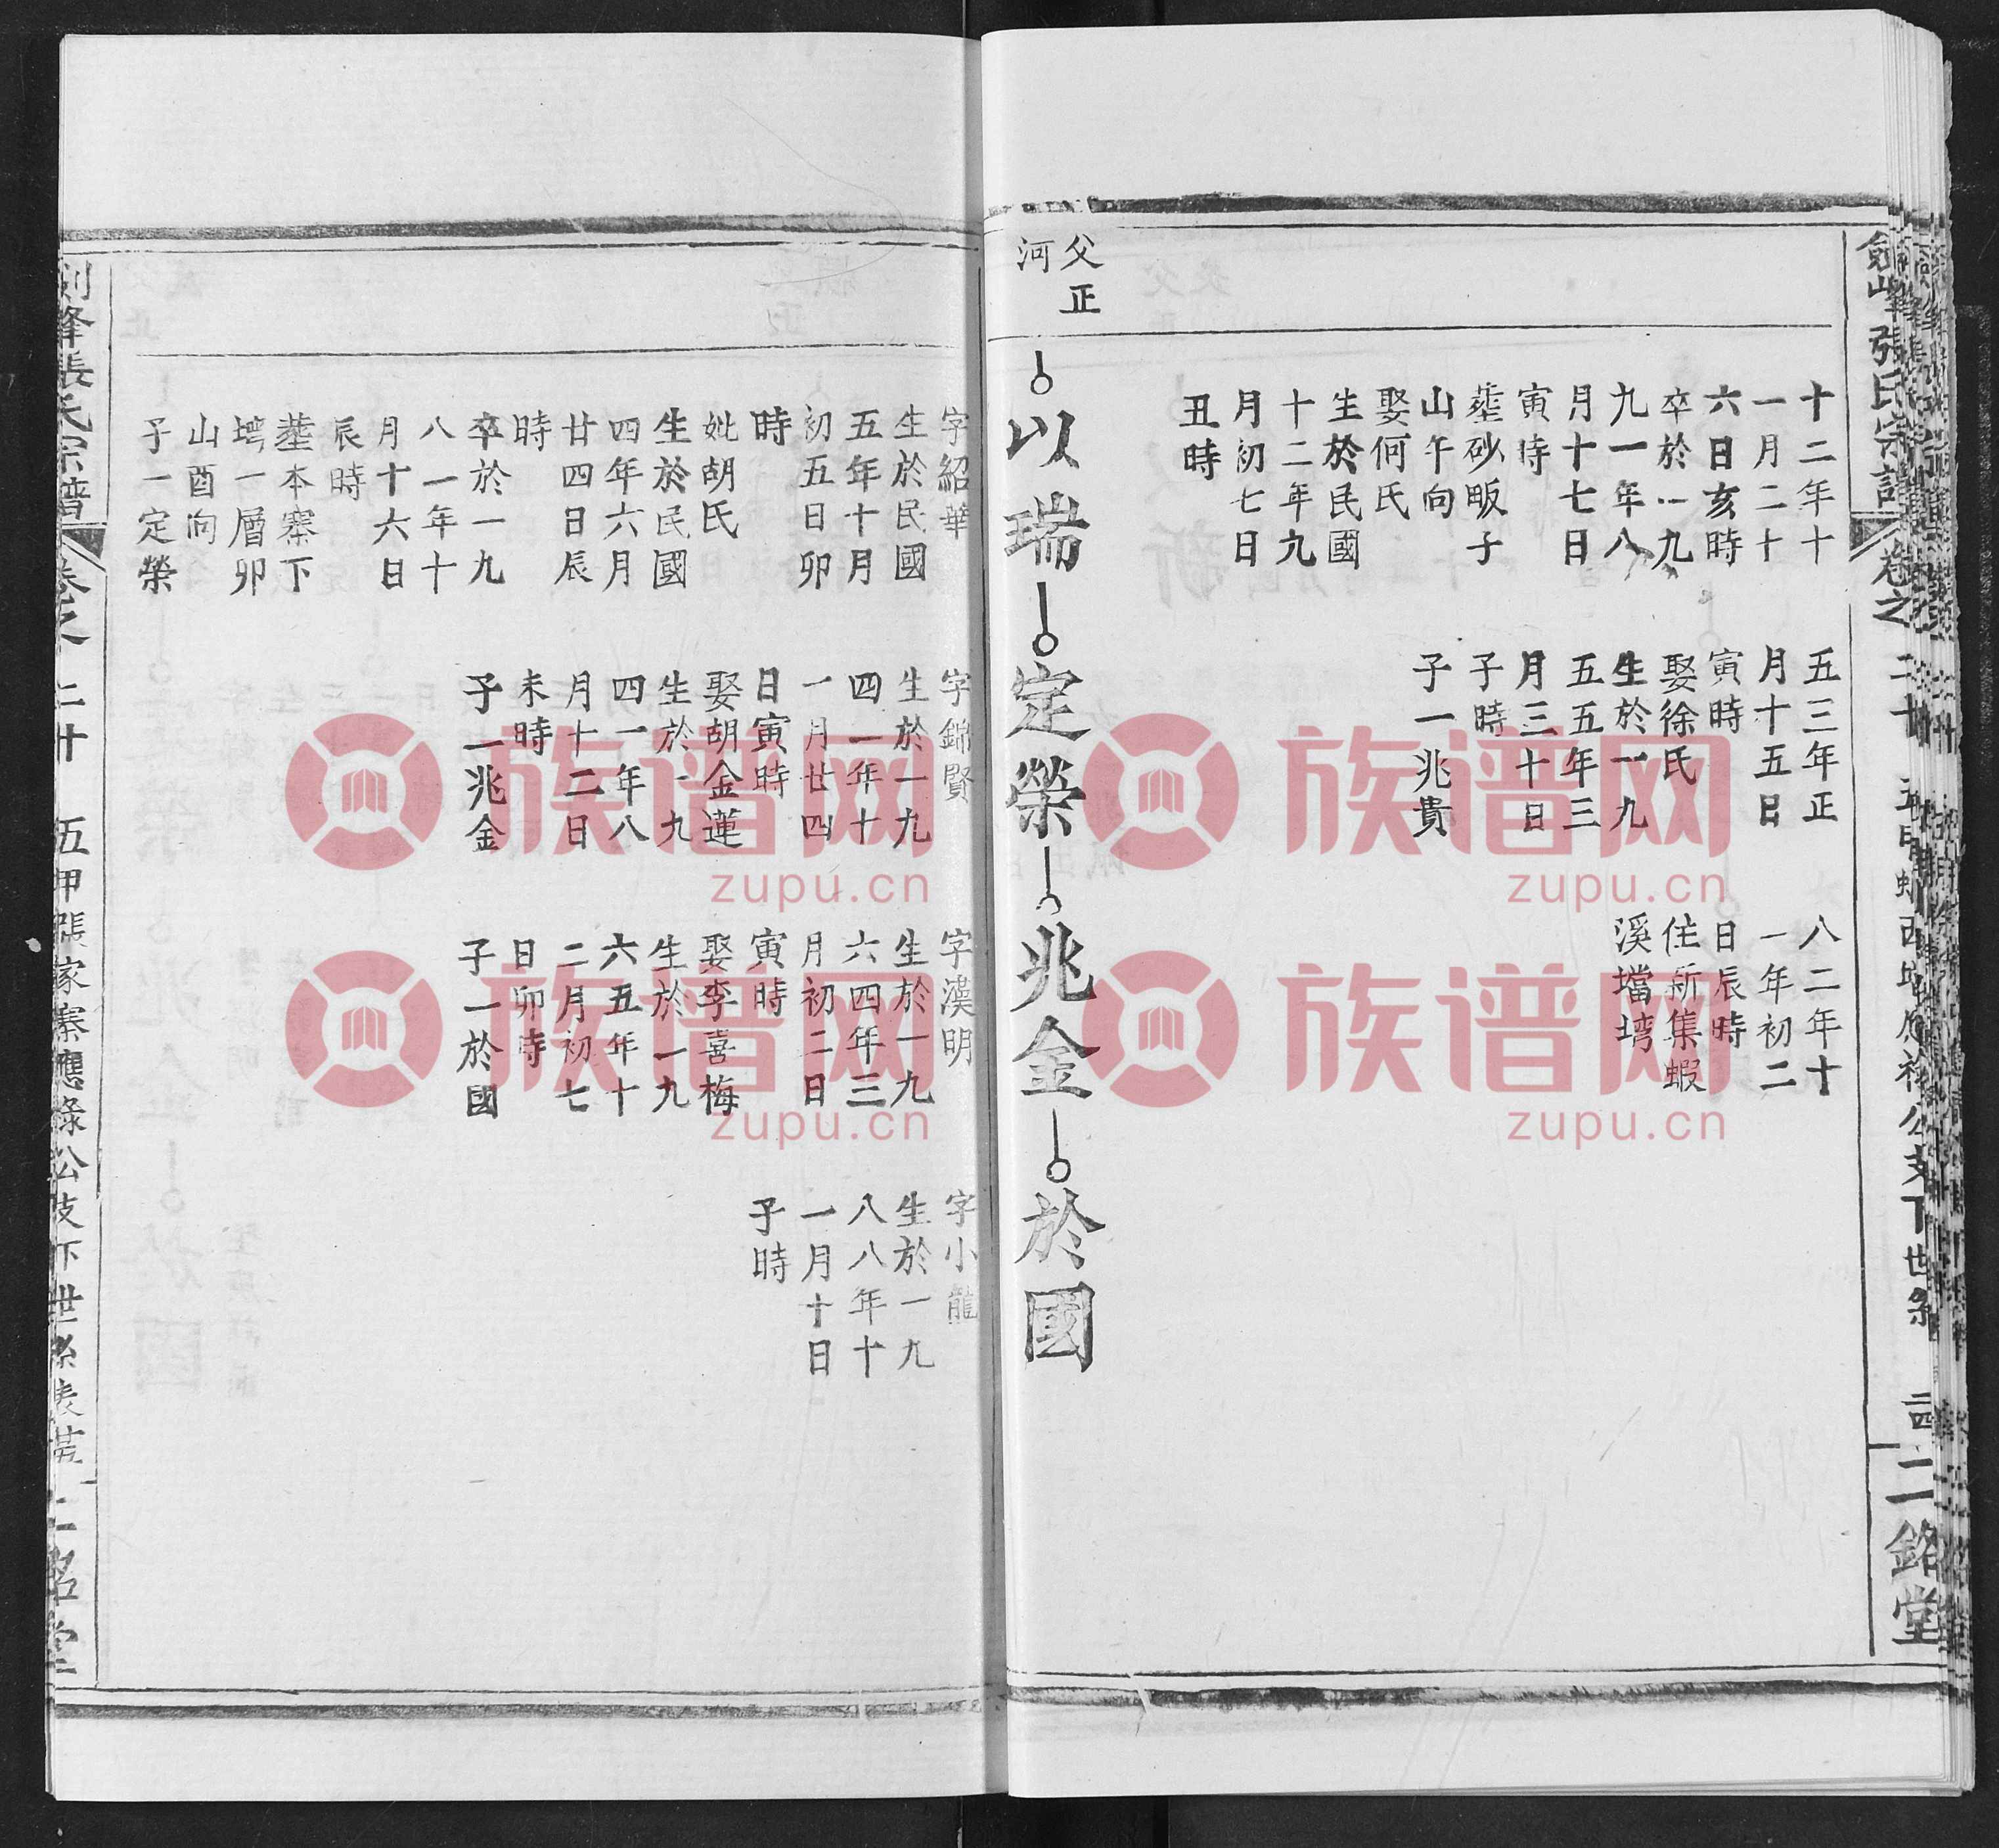 劍峰張氏宗譜
卷之二十
二銘堂
十二年十
一月二十
六日亥時
卒於一九
九一年八
月十七日
寅時
塟砂畈子
山午向
娶何氏
生於民國
十二年九
月初七日
丑時
五三年正
月十五日
寅時
娶徐氏
生於一九
五五年三
月三十日
子時
子一兆貴
八二年十
一年初二
日辰時
住新集蝦
溪壋塆
父正
河
以瑞
定榮
兆金
於國
字紹華
生於民國
五年十月
初五日卯
時
妣胡氏
生於民國
四年六月
廿四日辰
時
卒於一九
八一年十
月十六日
辰時
塟本寨下
塆一層卯
山酉向
子一定榮
字錦賢
生於一九
四一年十
一月廿四
日寅時
娶胡金蓮
生於一九
四一年八
月十二日
未時
子一兆金
字漢明
生於一九
六四年三
月初二日
寅時
娶李喜梅
生於一九
六五年十
二月初七
日卯時
子一於國
字小龍
生於一九
八八年十
一月十日
子時
劍峰張氏宗譜
卷之二十
五甲張家寨應祿公支下世系表
二銘堂
族谱网
zupu.cn
族谱网
zupu.cn
族谱网
zupu.cn
族谱网
zupu.cn